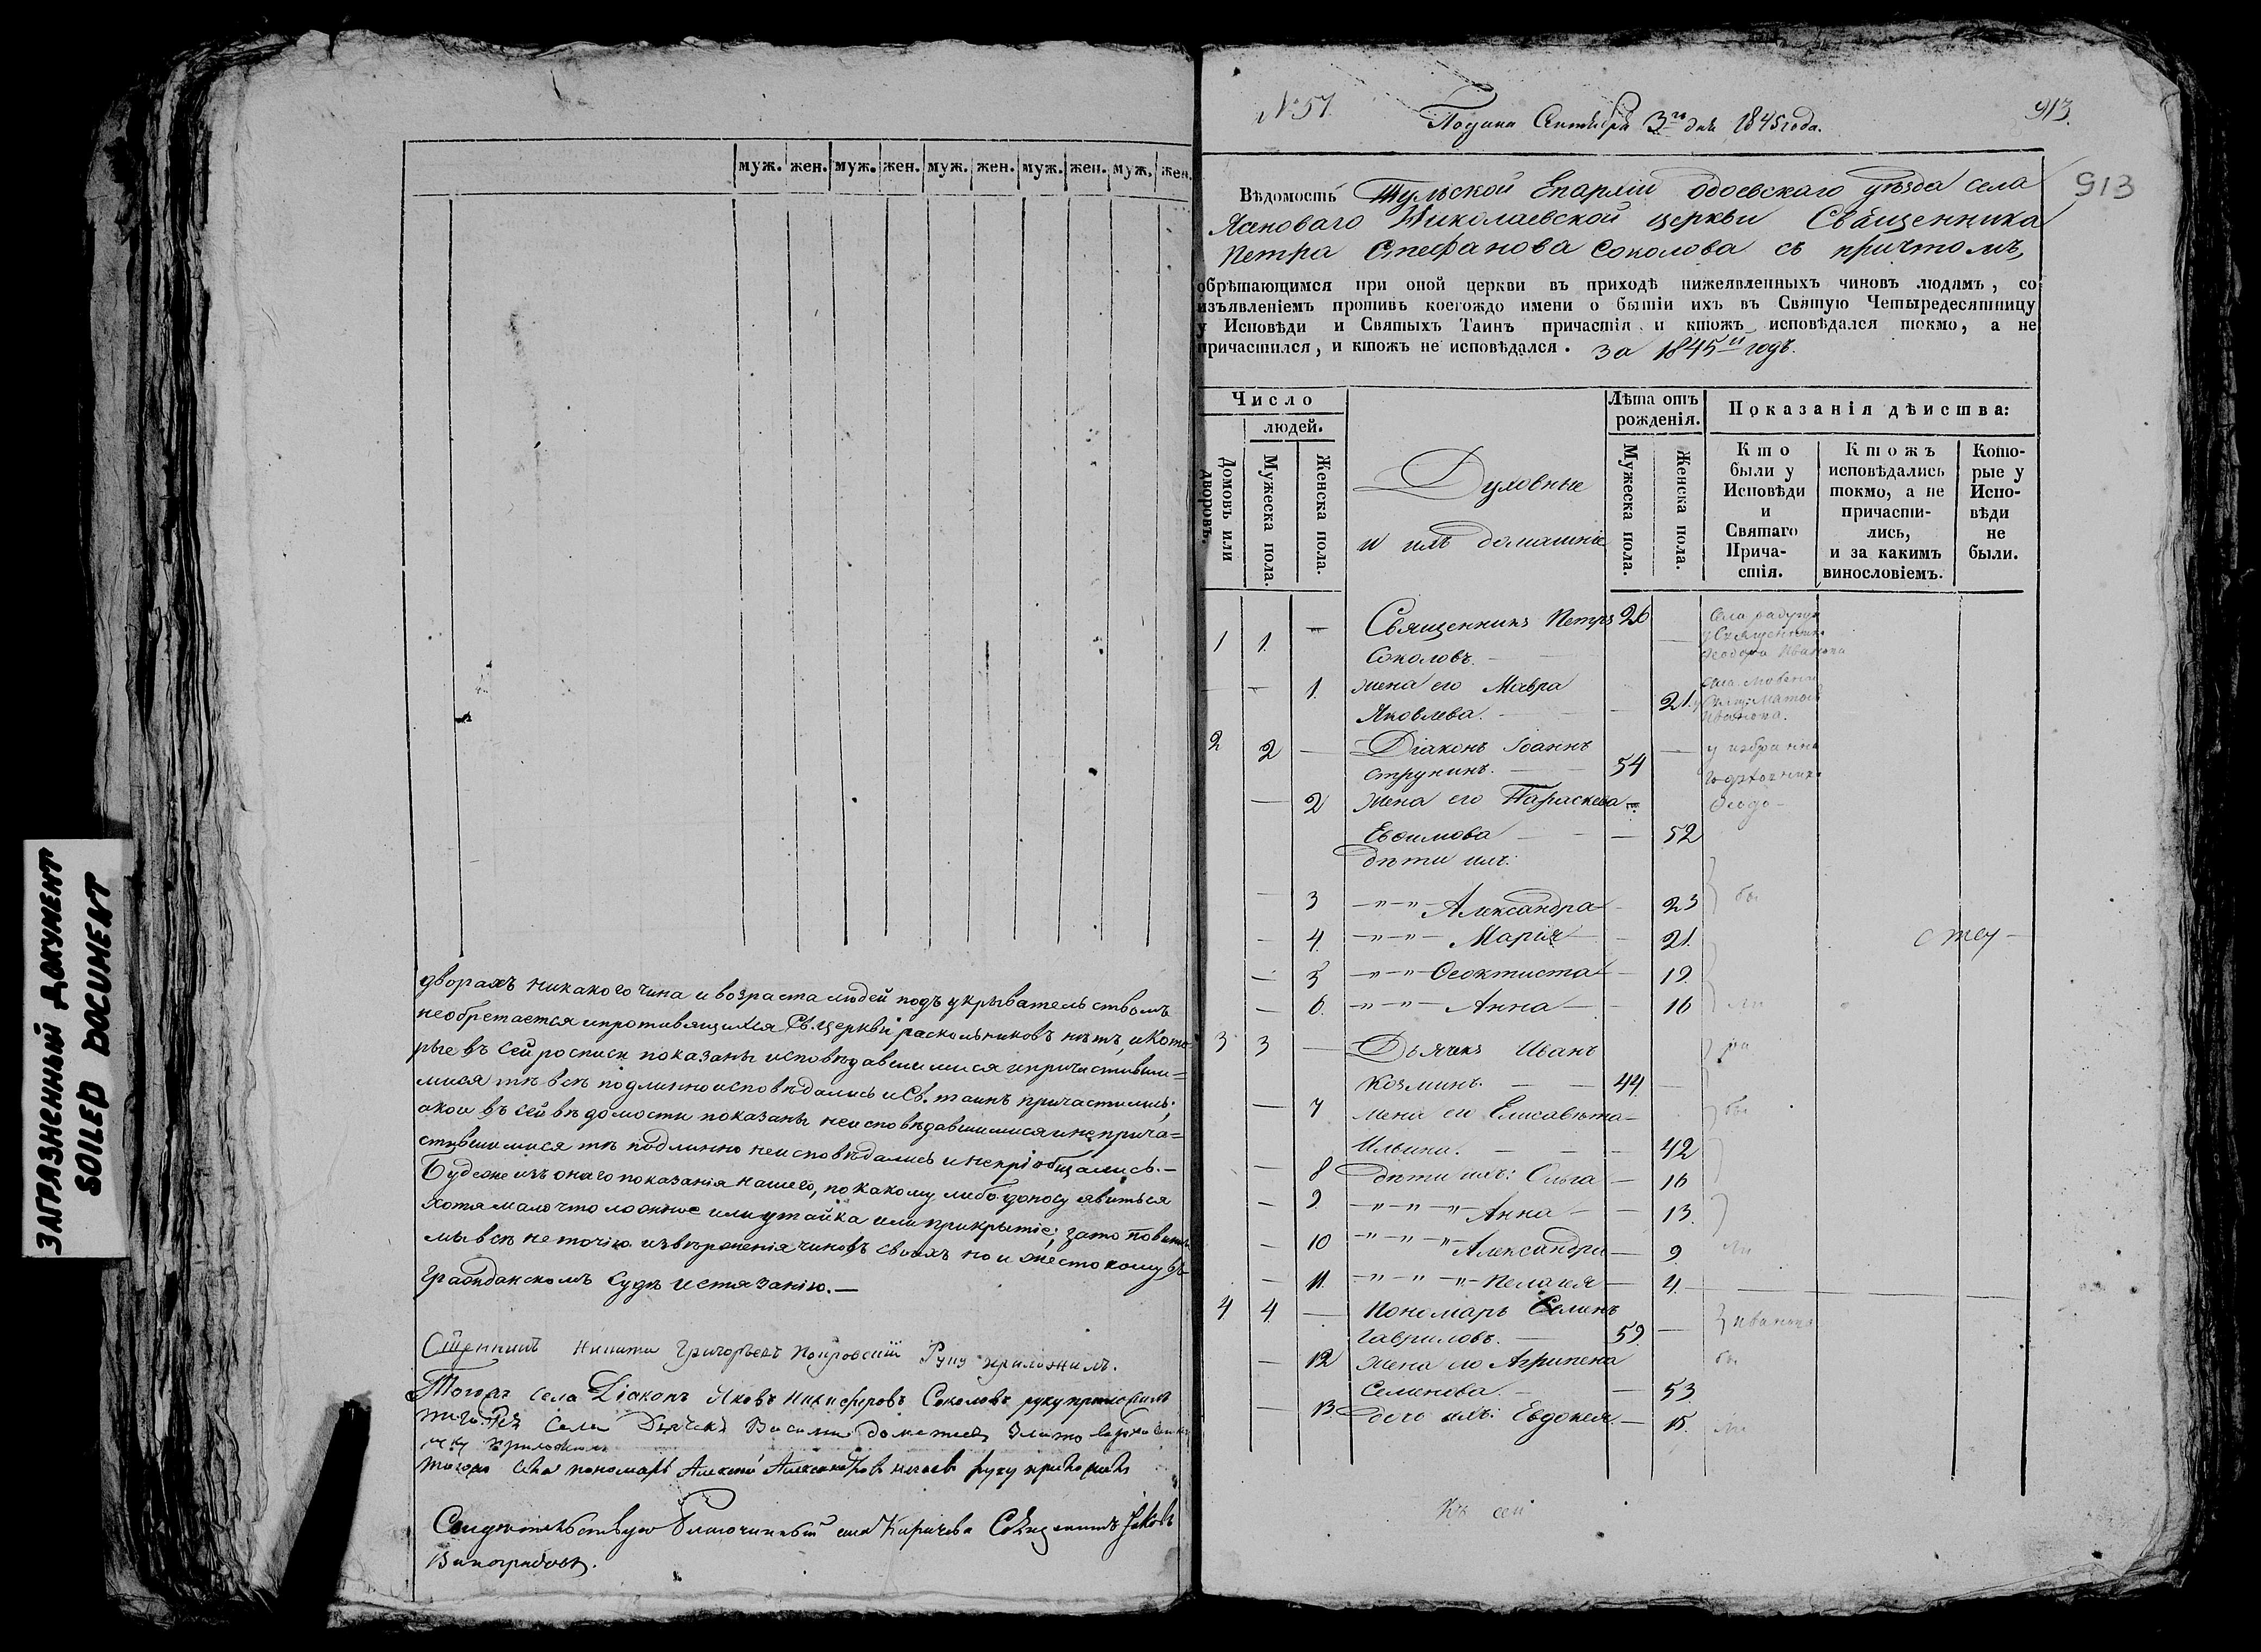 ЗАГРЯЗНЕННЫЙ ДОКУМЕНТ
SOILED DOCUMENT
муж. жен. муж. жен. муж. жен. муж. жен. муж. жен.
дворахъ никакого чина и возраста людей подъ укрывательствомъ
необретается ипротивящихся Св. церкви раскольниковъ нѣтъ, икото
рые въ сей росписи показаны исповѣдавшимися ипричастивши=
мися тѣ всѣ подлинно исповѣдались иСв. таинъ причастились;
акои въ сей вѣдомости показаны неисповѣдавшимися инеприча=
стившимися тѣ подлинно неисповѣдались инепріобщались.—
Будеже изъ онаго показанія нашего, по какому либо доносу явиться
хотя мало что ложное или утайка или прикрытіе; зато повинны
мы всѣ не точію изверженія чиновъ своихъ но и жестокому въ
гражданскомъ судѣ истязанію.—
Никита Григорьевъ Покровскій Руку приложилъ.
Тогожъ села Діаконъ Яковъ Никифоровъ Соколовъ руку приложилъ
села Дьячекъ Василий
приложилъ
тогожъ села пономарь Алексей Александровъ руку приложилъ
Свидетельствую Благочинный села Священникъ Іаковъ
Виноградовъ.
№ 57.
Подана Сентября 3го дня 1845 года.
913.
913
Вѣдомость Тульской Епархіи Одоевскаго уѣзда села
Николаевской церкви Священника
Петра Стефанова Соколова съ причтомъ,
обрѣтающимся при оной церкви въ приходѣ нижеявленныхъ чиновъ людямъ, со
изъявленіемъ противъ коегождо имени о бытіи ихъ въ Святую Четыредесятницу
у Исповѣди и Святыхъ Таинъ причастія и ктожъ исповѣдался токмо, а не
причастился, и ктожъ не исповѣдался. за 1845й годъ.
Число
людей.
Домовъ или дворовъ.
Мужеска пола.
Женска пола.
Духовные
и ихъ домашніе
Лѣта отъ рожденія.
Мужеска пола.
Женска пола.
Показанія дѣиства:
Кто были у Исповѣди и Святаго Прича- стія.
Ктожъ исповѣдались токмо, а не причасти- лись, и за какимъ винословіемъ.
Кото- рые у Испо- вѣди не были.
1 1. — Священникъ Петръ 26
Соколовъ.
— 1. жена его Мавра
Яковлева. — 21.
2 2 — Діаконъ Іоаннъ —
Струнинъ. — 54
— 2 жена его Параскева
Евѳимова — — 52
дѣти ихъ:
— 3 —"—"— Александра — 23 бы
— 4. —"—"— Марія — 21.
— 5 —"—"— Ѳеоктиста — 19.
— 6. —"—"— Анна — 16 ли
3 3 — Дьячекъ Иванъ
Козминъ. — 44 —
— 7 жена его Елисавета — бы
Ильина. — — 42
— 8 дѣти ихъ: Ольга — 16
— 9 —"—"—"— Анна — 13.
— 10 —"—"—"— Александра — 9. ли
— 11. —"—"—"— Пелагея — 4.
4 4 — Пономарь
Гавриловъ. — 59. — Иванова
— 12 жена его Агрипена бы
Семенова. — — 53.
— 13 дочь ихъ: Евдокея. — 15. ли
Къ сей